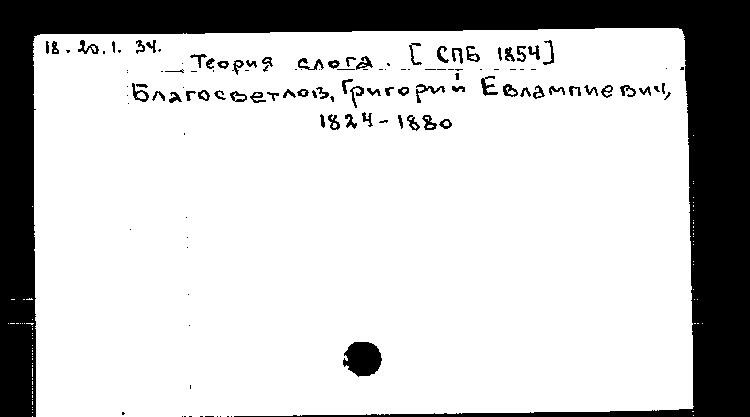 18.20.1.34.
Теория слога. [СПБ 1854]
Благосветлов, Григорий Евлампиевич,
1824-1880